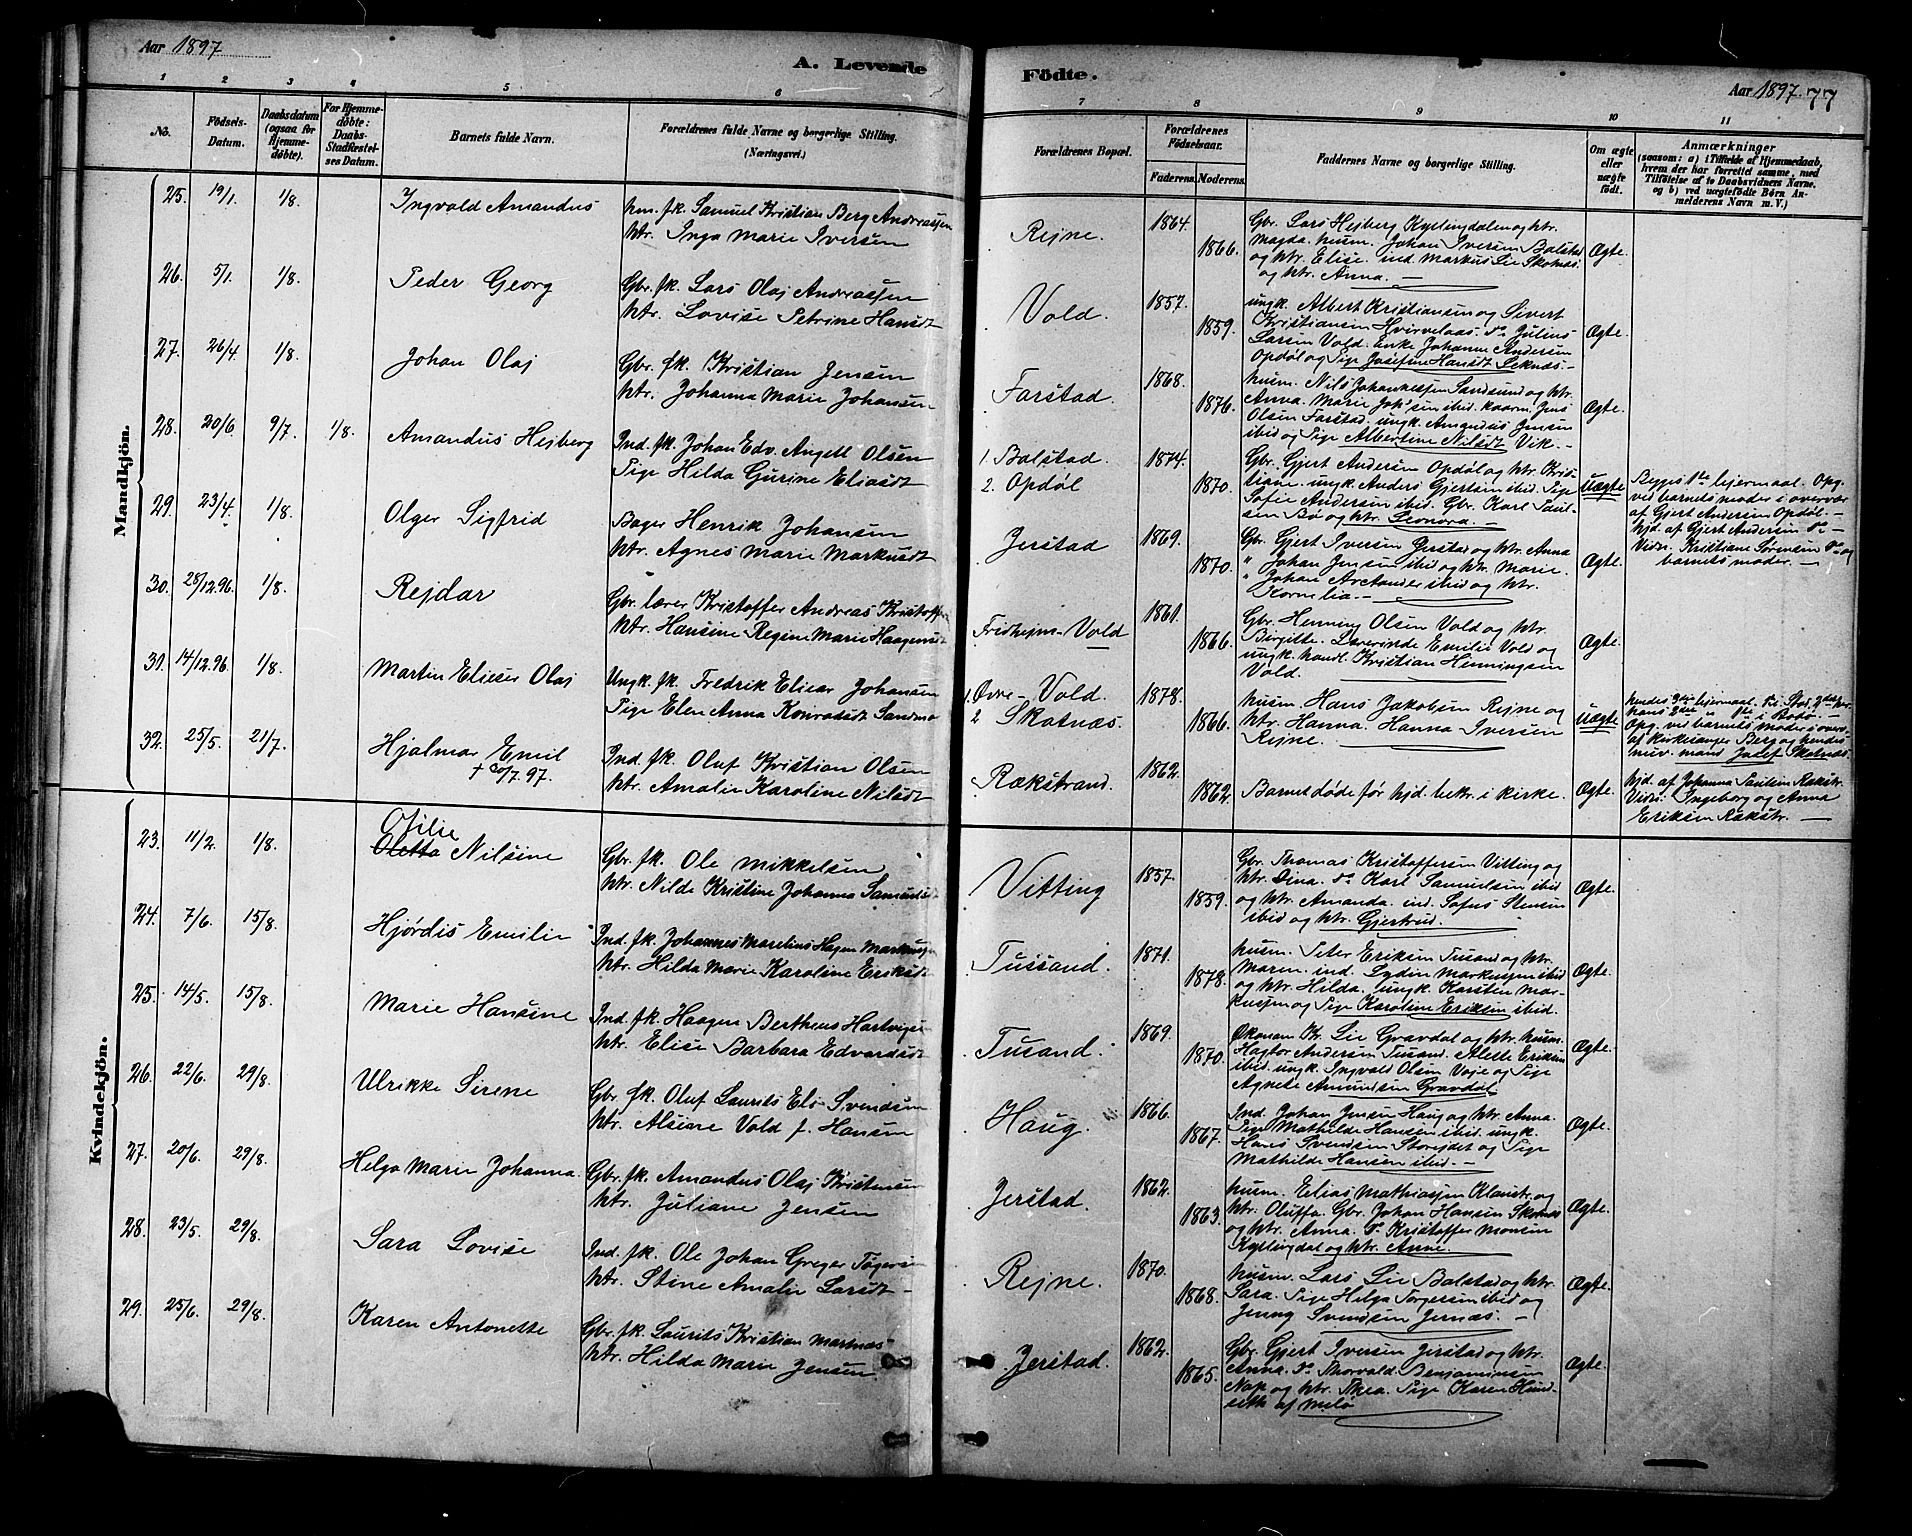 Aar 1897
A. Levende
Födte.
Aar 1897. 77
1 2 3 4 5 6 7 8 9 10 11
No.
Födsels-Datum.
Daabsdatum (ogsaa for Hjemmedöbte).
For Hjemmedöbte: Daabs-Stadfæstelses Datum.
Barnets fulde Navn.
Forældrenes fulde Navne og borgerlige Stilling.
(Næringsvei.)
Forældrenes Bopæl.
Forældrenes Födselsaar.
Faderens. Moderens.
Faddernes Navne og borgerlige Stilling.
Om ægte eller uægte födt.
Anmærkninger
(saasom: a) i Tilfælde af Hjemmedaab, hvem der har forrettet samme, med Tilföielse af to Daabsvidners Navne, og b) ved uægtefödte Börn Anmelderens Navn m. V.)
Mandkjön.
25. 19/1. 1/8. Ingvald Amandus
hm. fk. Samuel Kristian Berg Andreassen
htr. Inga Marie Iversen
Rejne. 1864. 1866.
Gbr. Lars Hejberg Kyllingdalen og htr.
Magda. husm. Johan Iversen Balstad
og htr. Elise. ind. Markus Lie Skotnæs.
og htr. Anna.
Ægte.
26. 5/1. 1/8. Peder Georg
Gbr. fk. Lars Olaj Andreassen
htr. Lovise Petrine Hansdt
Vold. 1857. 1859.
ungk. Albert Kristiansen og Severt
Kristiansen Hvirvelaas. do Julius
Larsen Vold. Enke Johanne Andersen
Opdøl og Pige Josefine Hansdt Leknæs.
Ægte.
27. 26/4. 1/8. Johan Olaj
Gbr. fk. Kristian Jensen
htr. Johanna Marie Johansen
Farstad 1868. 1876.
husm. Nils Johannessen Sandsund og htr.
Anna. Marie Joh'sen ibid. kaarm. Jens
Olsen Farstad. ungk. Amandus Jensen
ibid og Pige Albertine Nilsdt Vik.
Ægte.
28. 20/6. 9/7. 1/8. Amandus Hejberg
Ind. fk. Johan Edv. Angell Olsen
Pige Hilda Gurine Eliasdt
1. Balstad. 2. Opdøl 1874. 1870.
Gbr. Gjert Andersen Opdøl og htr. Kristiane.
ungk. Anders Gjertsen ibid. Pige
Sofie Andersen ibid. Gbr. Karl Paulsen
Bø og htr. Leonora.
uægte
Begges 1te lejermaal. Opg.
ved barnets moder i overvær
af Gjert Andersen Opdøl.
hjd. af Gjert Andersen do
Vidn. Kristiane Sørensen do og
barnets moder.
29. 23/4. 1/8. Olger Sigfrid
Bager Henrik Johansen
htr. Agnes Marie Markusdt
Jerstad 1869. 1870.
Gbr. Gjert Iversen Jerstad og htr. Anna
" Johan Jensen ibid og htr. Marie.
" Johan Arctander ibid og htr.
Kornelia.
Ægte.
30. 28/12.96. 1/8. Rejdar
Gbr. lærer Kristoffer Andreas Kristoffersen
htr. Hansine Regine Marie Haagensdt
Fridhejm-Vold 1861. 1866.
Gbr. Henning Olsen Vold og htr.
Birgitte. Lærerinde Emilie Vold og
ungk. handl. Kristian Henningsen
Vold.
Ægte.
31. 14/12.96. 1/8. Martin Elieser Olaj
Ungk. fk. Fredrik Eliear Johansen
Pige Elen Anna Konradsdt Sandmo
1. Øvre-Vold. 2 Skotnæs. 1878. 1866.
husm. Hans Jakobsen Rejne og
htr. Hanna. Hanna Iversen
Rejne.
uægte
Opg. ved barnets moder i overv.
af kirkesanger Berg og hendes
nuv. mand Josef Skotnæs.
32. 25/5. 21/7. Hjalmar Emil
† 30/7.97.
Ind. fk. Oluf Kristian Olsen
htr. Amalie Karoline Nilsdt
Rækstrand. 1862. 1862.
Barnet døde før hjd. bekr. i kirke.
Ægte.
hjd. af Johanna Paulsen Rækstr.
Vidn: Ingeborg og Anna
Eriksen Rækstr.
Kvindekjön.
23. 11/2. 1/8. Ofilie
Oletta Nilsine
Gbr. fk. Ole Mikkelsen
htr. Nilde Kristine Johanna Samuelsdt
Vitting 1857. 1859.
Gbr. Thomas Kristoffersen Vitting og
htr. Dina. do Karl Samuelsen ibid
og htr. Amanda. ind. Sofus Stensen
ibid og htr. Gjertrud.
Ægte.
24. 7/6. 15/8. Hjørdis Emilie
Ind. fk. Johannes Marelius Hagen Markussen
htr. Hilda Marie Karoline Eriksdt
Tussand. 1871. 1878.
husm. Peter Eriksen Tusand og htr.
Maren. ind. Lydin Markussen ibid
og htr. Hilda. ungk. Karsten Markussen
og Pige Karoline Eriksen ibid.
Ægte.
25. 14/5. 15/8. Marie Hansine
Ind. fk. Haagen Bertheus Hartvigsen
htr. Elise Barbara Edvardsdt
Tusand. 1869. 1870.
Økonom Kr. Lie Gravdal og husm.
Hagtor Andersen Tusand. Alette Eriksen
ibid. ungk. Ingvald Olsen Voje og Pige
Agnete Amundsen Gravdal.
Ægte.
26. 22/6. 29/8. Ulrikke Sirene
Gbr. fk. Oluf Laurits Elis Svendsen
htr. Alsine Vold f. Hansen
Haug. 1866. 1867.
Ind. Johan Jensen Haug og htr. Anna.
Pige Mathilde Hansen ibid. ungk.
Hans Svendsen Storejdet og Pige
Mathilde Hansen ibid.
Ægte.
27. 20/6. 29/8. Helga Marie Johanna.
Gbr. fk. Amandus Olaj Kristensen
htr. Juliane Jensen
Jerstad. 1862. 1863.
husm. Elias Mathiassen Klaustr. og
htr. Oluffa. Gbr. Johan Hansen Skotnæs
og htr. Anna. do Kristoffer Monsen
Kyllingdal og htr. Anne.
Ægte.
28. 23/5. 29/8. Sara Lovise
Ind. fk. Ole Johan Greger Tøgersen
htr. Stine Amalie Larsdt
Rejne. 1870. 1868.
husm. Lars Lie Balstad og htr.
Sara. Pige Helga Torgersen ibid og
Jenny Svendsen Jernæs.
Ægte.
29. 25/6. 29/8. Karen Antonette
Gbr. fk. Laurits Kristian Martnæs
htr. Hilda Marie Jensen.
Jerstad. 1862. 1865.
Gbr. Gjert Iversen Jerstad og htr.
Anna. do Thorvald Benjaminsen
Nap og htr. Thea. Pige Karen Hundseth
af Melø
Ægte.